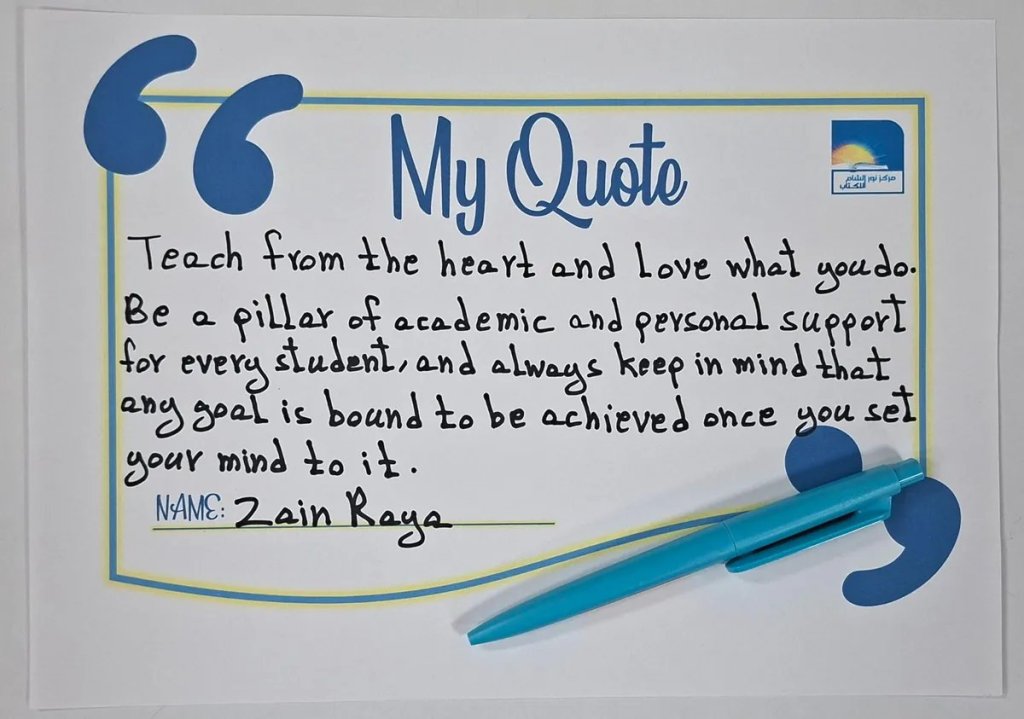 My Quote
مركز نور الشام
للكتاب
Teach from the heart and love what you do.
Be a pillar of academic and personal support
for every student, and always keep in mind that
any goal is bound to be achieved once you set
your mind to it.
NAME: Zain Raya